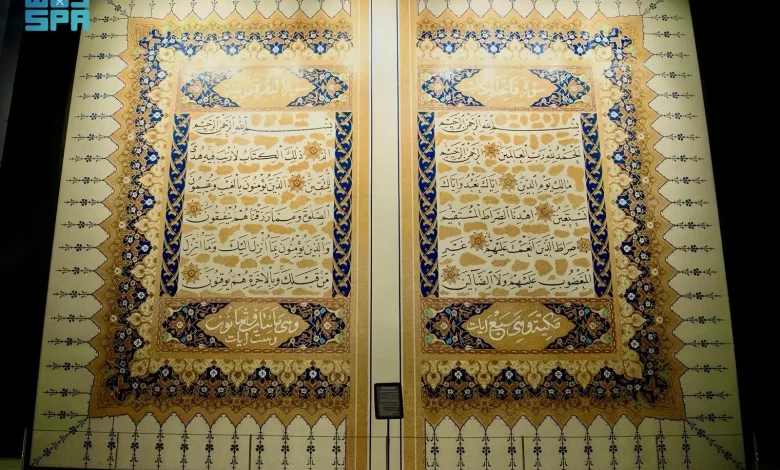 واس
SPA
سورة فاتحة الكتاب
بسم الله الرحمن الرحيم
الحمد لله رب العالمين الرحيم
مالك يوم الدين اياك نعبد واياك
نستعين اهدنا الصراط المستقيم
صراط الذين انعمت عليهم غير
المغضوب عليهم ولا الضالين
مكية وهي سبع ايات
سورة البقرة
بسم الله الرحمن الرحيم
الم ذلك الكتاب لا ريب فيه هدى
للمتقين الذين يؤمنون بالغيب ويقيمون
الصلوة ومما رزقناهم ينفقون
والذين يؤمنون بما انزل اليك وما انزل
من قبلك وبالاخرة هم يوقنون
وهي مائتان وثمانون
وست ايات